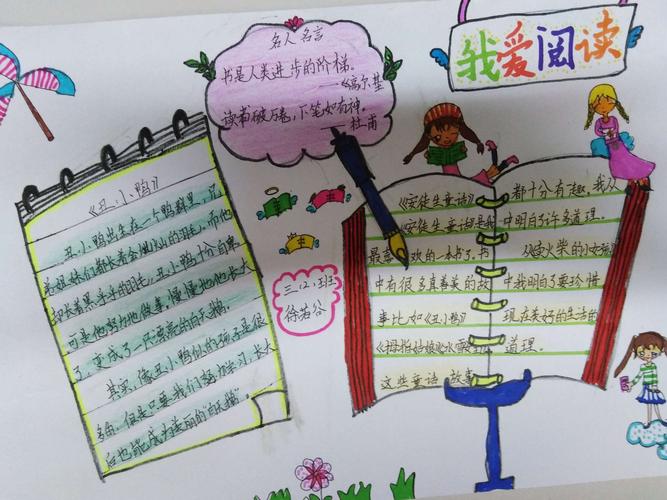 我爱阅读
名人名言
书是人类进步的阶梯。
——《高尔基
读书破万卷,下笔如有神。
——杜甫
《丑小鸭》
丑小鸭出生在一个鸭群里,兄
弟姐妹们都长着金灿灿的羽毛,而他
却长着黑乎乎的羽毛。丑小鸭十分自卑
可是他努力地做事,慢慢地他长大
了,变成了一只漂亮的白天鹅。
其实,像丑小鸭似的孩子是很
多的,但是只要我们努力学习,长大
后也能成为美丽的"白天鹅"
三.12.班
徐若谷
《安徒生童话》
《安徒生童话》是我
最喜欢的一本书了。书
中有很多真善美的故
事比如《丑小鸭》
《拇指姑娘》
这些童话故事
都十分有趣,我从
中明白了许多道理。
从《卖火柴的小女孩》
中我明白了要珍惜
现在美好的生活的
道理。